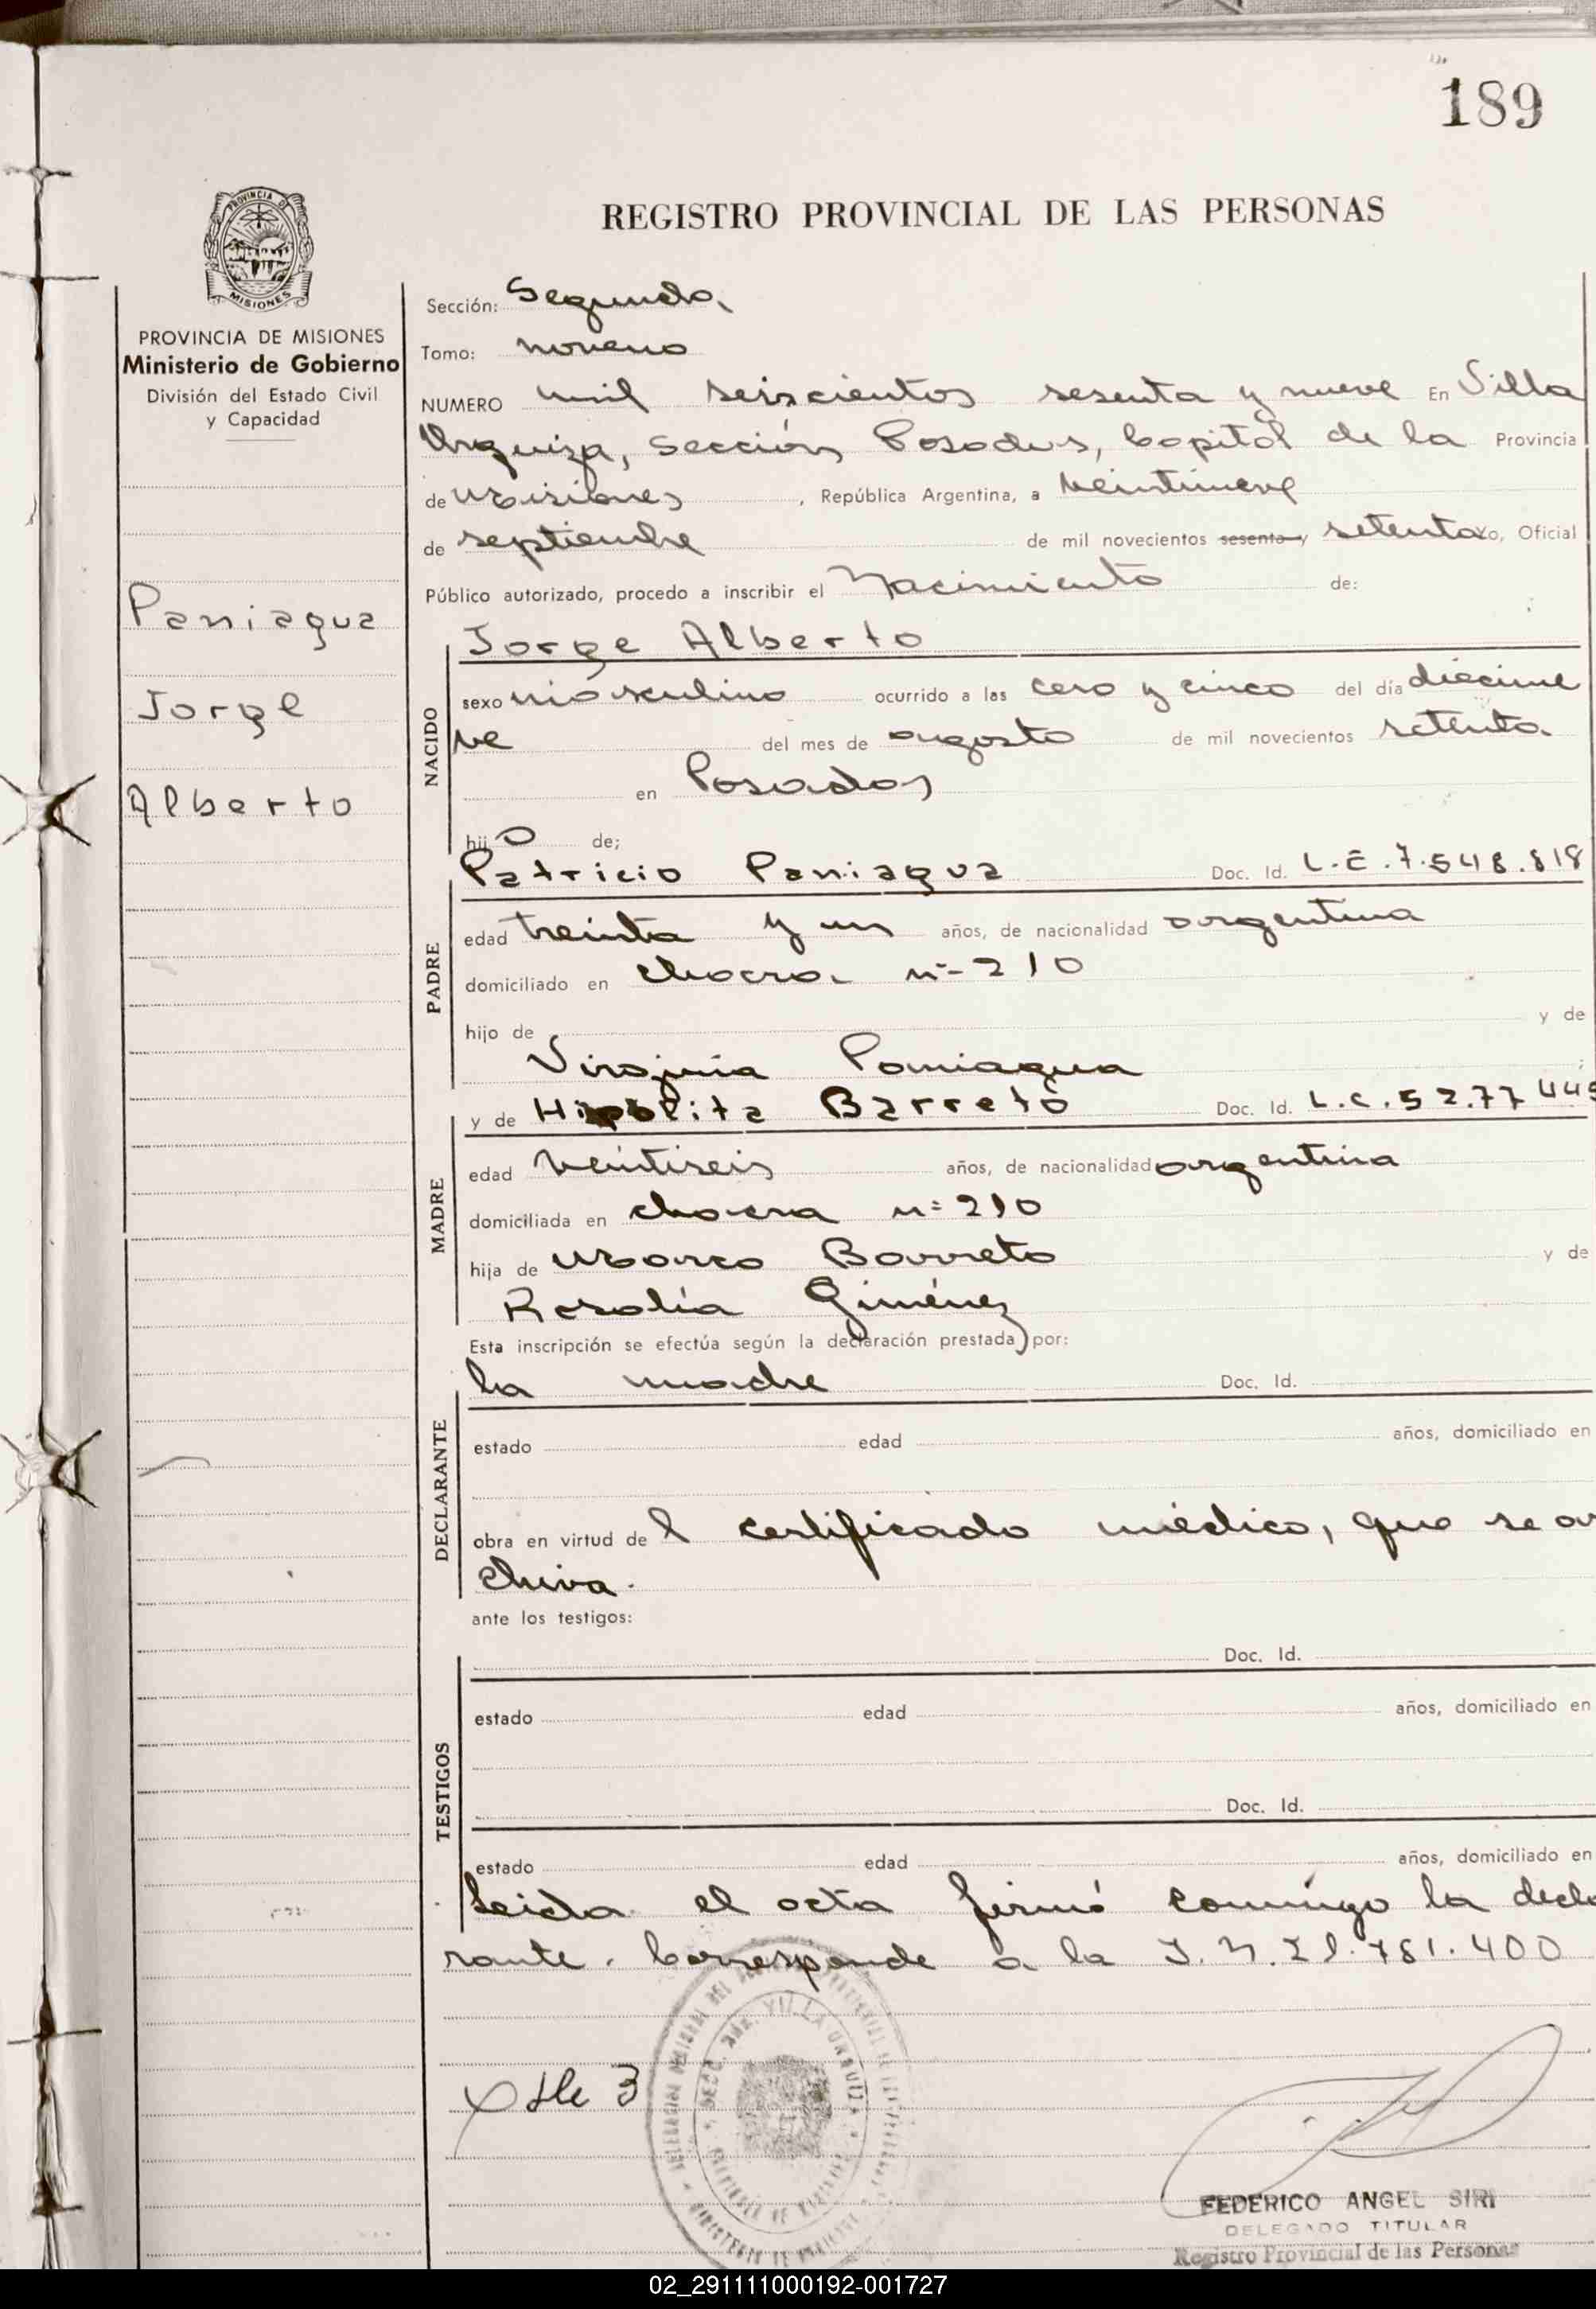 189
REGISTRO PROVINCIAL DE LAS PERSONAS
PROVINCIA DE
MISIONES
PROVINCIA DE MISIONES
Ministerio de Gobierno
División del Estado Civil
y Capacidad
Paniagua
Jorge
Alberto
Sección: Segunda
Tomo: noveno
NUMERO mil seiscientos sesenta y nueve En Villa
Urquiza, Sección Posadas, Capital de la Provincia
de Misiones, República Argentina, a veintinueve
de septiembre de mil novecientos sesenta y setenta yo, Oficial
Público autorizado, procedo a inscribir el Nacimiento de:
Jorge Alberto
NACIDO
sexo masculino ocurrido a las cero y cinco del día diecinue
ve del mes de agosto de mil novecientos setenta
en Posadas
hijo de;
Patricio Paniagua Doc. Id. L.E.7.548.818
PADRE
edad treinta y un años, de nacionalidad argentina
domiciliado en chacra nº 210
hijo de y de
Virginia Paniagua
y de Hipólita Barreto Doc. Id. L.C.5 2.77 445
MADRE
edad veintiseis años, de nacionalidad argentina
domiciliada en chacra nº 210
hija de Marco Barreto y de
Rosalía Giménez
Esta inscripción se efectúa según la declaración prestada por:
la madre Doc. Id.
DECLARANTE
estado edad años, domiciliado en
obra en virtud de l certificado médico, que se ar
chiva.
ante los testigos:
Doc. Id.
TESTIGOS
estado edad años, domiciliado en
Doc. Id.
estado edad años, domiciliado en
Leida el acta firmó conmigo la decla
rante. Corresponde a la
VILLA URQUIZA
FEDERICO ANGEL SIRI
DELEGADO TITULAR
Registro Provincial de las Personas
02_291111000192-001727